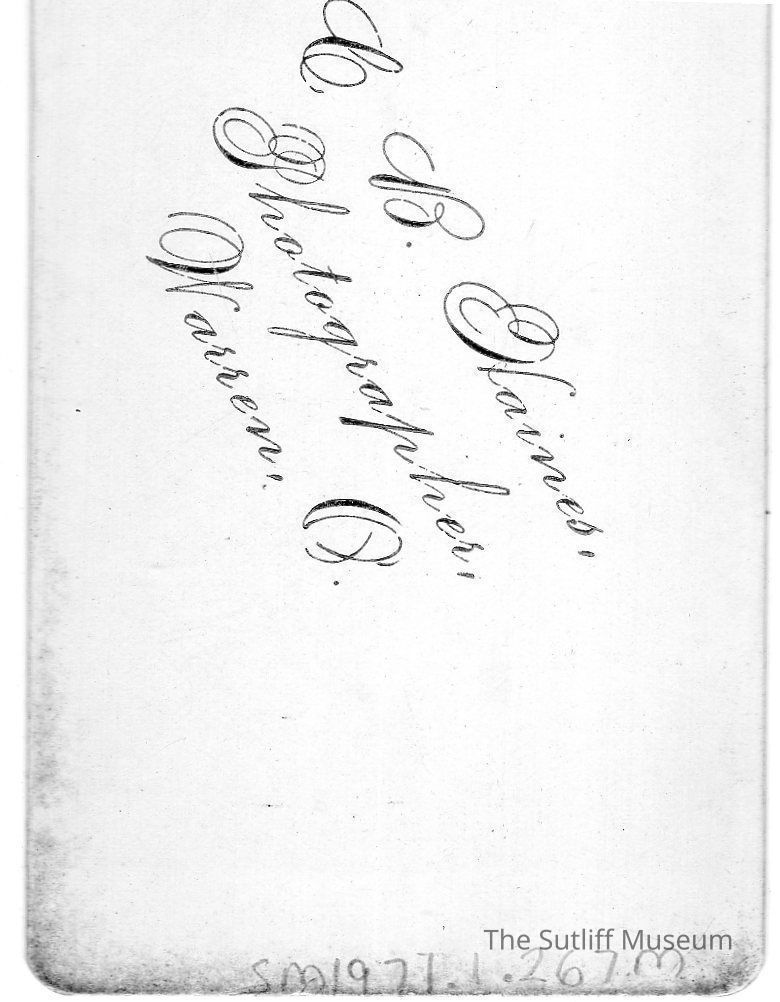 B. Haines,
Photographer,
Warren, O.
The Sutliff Museum
SM1977.1.267.M